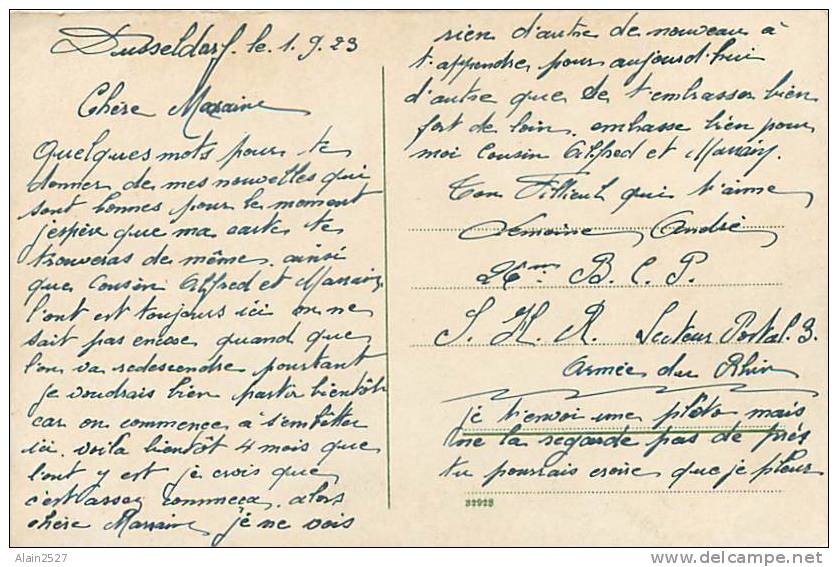 Dusseldorf. le 1.9.23
Chère Marraine
Quelques mots pour te
donner de mes nouvelles qui
sont bonnes pour le moment
j'espère que ma carte te
trouveras de même. ainsi
que Cousin Alfred et Marraine
l'ont est toujours ici on ne
sait pas encore quand que
l'on va redescendre pourtant
je voudrais bien partir bientôt
car on commence à s'embêter
ici. voila bientôt 4 mois que
l'ont y est je crois que
c'est assez commeca. alors
chère Marraine je ne vois
rien d'autre de nouveau à
t'apprendre pour aujourd'hui
d'autre que de t'embrasser bien
fort de loin. embrasse bien pour
moi Cousin Alfred et
Ton Filleul qui t'aime
Lemoine André
26me B.C.P.
S. H. R. Secteur Postal. 3.
Armée du Rhin
je t'envoi une photo mais
ne la regarde pas de près
tu pourrais croire que je pleur
32928
Alain2527
www.delcampe.net